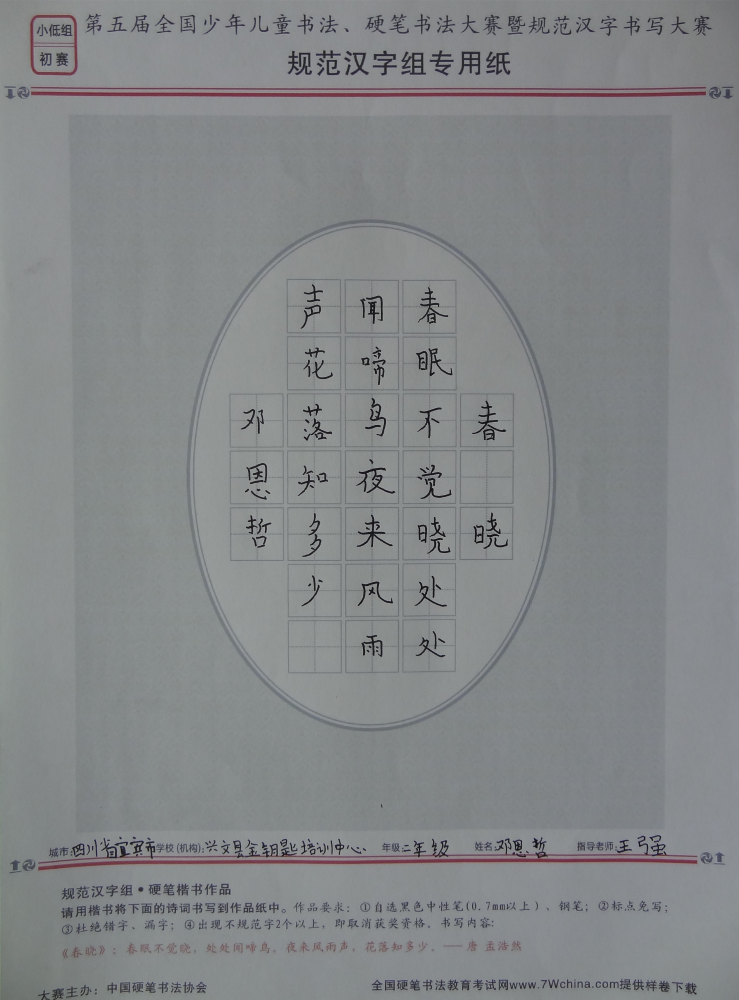 小低组
初赛
第五届全国少年儿童书法、硬笔书法大赛暨规范汉字书写大赛
规范汉字组专用纸
春晓
春眠不觉晓处处
闻啼鸟夜来风雨
声花落知多少
邓恩哲
城市:四川省宜宾市 学校(机构):兴文县金钥匙培训中心 年级:二年级 姓名:邓恩哲 指导老师:王弓强
规范汉字组•硬笔楷书作品
请用楷书将下面的诗词书写到作品纸中。作品要求:①自选黑色中性笔(0.7mm以上)、钢笔;②标点免写;
③杜绝错字、漏字;④出现不规范字2个以上,即取消获奖资格。书写内容:
《春晓》:春眠不觉晓,处处闻啼鸟。夜来风雨声,花落知多少。——唐 孟浩然
大赛主办:中国硬笔书法协会
全国硬笔书法教育考试网www.7Wchina.com提供样卷下载